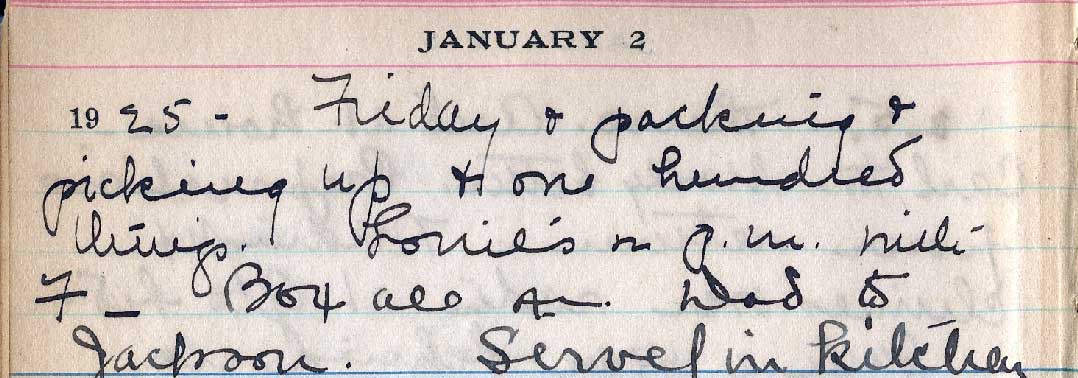 JANUARY 2
1925 - Friday & packing &
picking up & one hundred
things. Lonie's in p.m. with
F_ Box all Dad to
Jackson. Served in kitchen